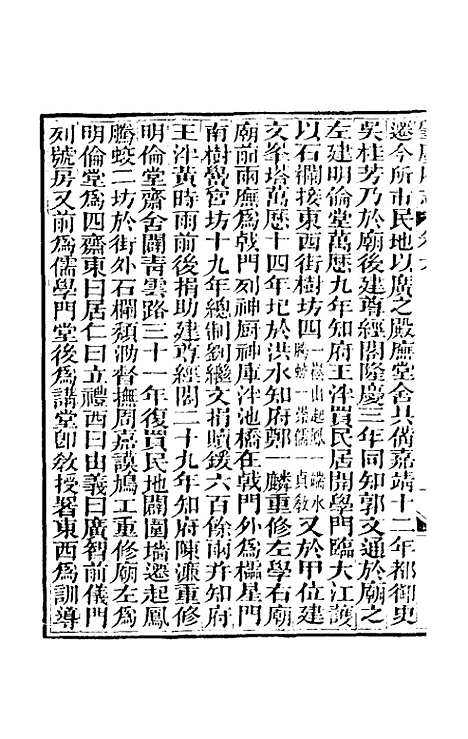 遷今所市民地以廣之殿廡堂舍具備嘉靖十二年都御史
吳桂芳乃於廟後建尊經閣隆慶三年同知郭文通於廟之
左建明倫堂萬歷九年知府王泮買民居開學門臨大江護
以石欄接東西街樹坊四一崧山起鳳一端水騰蛟一崇儒一貞敎又於甲位建
文峯塔萬歷十四年圮於洪水知府鄭一麟重修左學右廟
廟前兩廡爲戟門列神厨神庫泮池橋在戟門外爲櫺星門
南樹黌宮坊十九年總制劉繼文捐贖鍰六百餘兩幷知府
王泮黃時雨前後捐助建尊經閣二十九年知府陳濂重修
明倫堂齋舍闢靑雲路三十一年復買民地闢圍墻遷起鳳
騰蛟二坊於街外石欄頹泐督撫周嘉謨鳩工重修廟左爲
明倫堂爲四齋東曰居仁曰立禮西曰由義曰廣智前儀門
列號房又前爲儒學門堂後爲講堂卽敎授署東西爲訓導